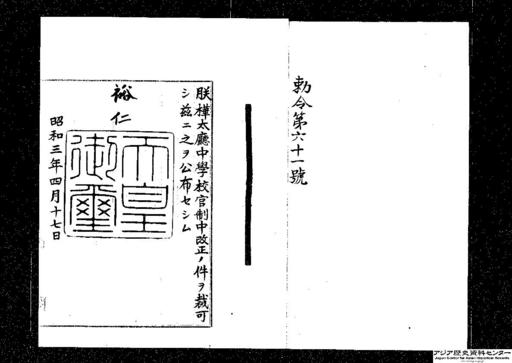 勅令第六十一號
朕樺太廳中學校官制中改正ノ件ヲ裁可
シ茲ニ之ヲ公布セシム
裕仁
天皇
御璽
昭和三年四月十七日
アジア歴史資料センター
Japan Center for Asian Historical Records